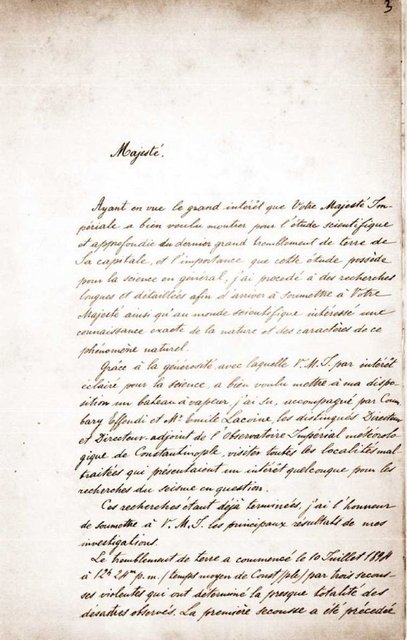 3
Majesté.
Ayant en vue le grand intérêt que Votre Majesté Im-
périale a bien voulu montrer pour l'étude scientifique
et approfondie du dernier grand tremblement de terre de
Sa capitale, et l'importance que cette étude possède
pour la science en général, j'ai procédé à des recherches
longues et détaillées afin d'arriver à soumettre à Votre
Majesté ainsi qu'au monde scientifique intéressé une
connaissance exacte de la nature et des caractères de ce
phénomène naturel.
Grâce à la générosité avec laquelle V. M. I. par intérêt
éclairé pour la science, a bien voulu mettre à ma dispo-
sition un bateau à vapeur j'ai pu, accompagné par Coum-
bary Effendi et Mr. Emile Lacoine, les distingués Directeur
et Directeur-adjoint de l'Observatoire Impérial météorolo-
gique de Constantinople, visiter toutes les localités mal-
traitées qui présentaient un intérêt quelconque pour les
recherches du seisme en question.
Ces recherches étant déjà terminées j'ai l'honneur
de soumettre à V. M. I. les principaux résultats de mes
investigations.
Le tremblement de terre a commencé le 10 Juillet 1894
à 12h 24m p. m. (temps moyen de Const/ple) par trois secous-
ses violentes qui ont déterminé la presque totalité des
désastres observés. La première secousse a été précédée